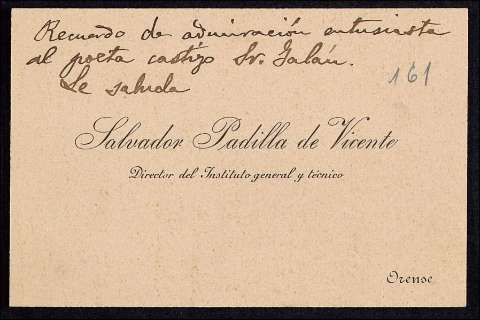 Recuerdo de admiración entusiasta
al poeta castizo Sr. Galán.
Le saluda
161
Salvador Padilla de Vicente
Director del Instituto general y técnico
Orense